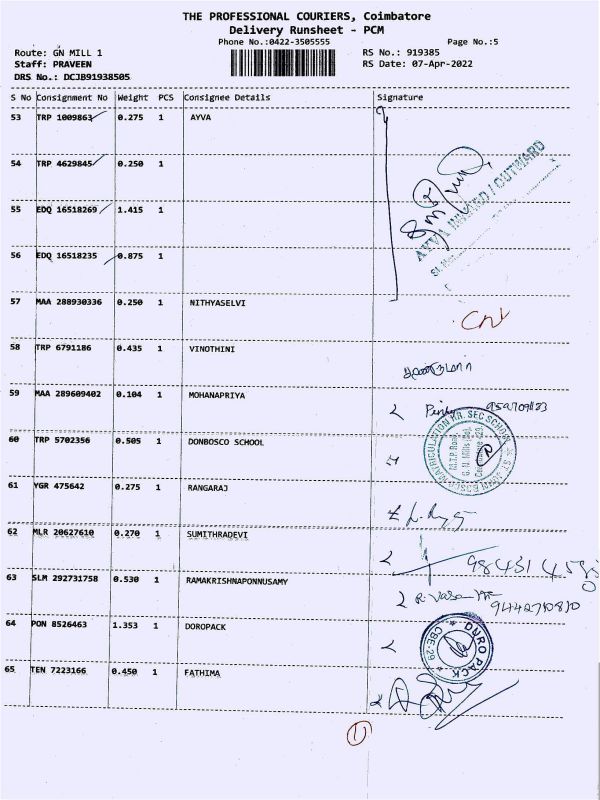 THE PROFESSIONAL COURIERS, Coimbatore
Delivery Runsheet - PCM
Phone No.:0422-3505555 Page No.:5
Route: GN MILL 1 RS No.: 919385
Staff: PRAVEEN RS Date: 07-Apr-2022
DRS No.: DCJB91938505
S No Consignment No Weight PCS Consignee Details Signature
53 TRP 1009863 0.275 1 AYVA
54 TRP 4629845 0.250 1
AYVA INWARD / OUTWARD
55 EDQ 16518269 1.415 1
56 EDQ 16518235 0.875 1
57 MAA 288930336 0.250 1 NITHYASELVI
58 TRP 6791186 0.435 1 VINOTHINI
59 MAA 289609402 0.104 1 MOHANAPRIYA
60 TRP 5702356 0.505 1 DONBOSCO SCHOOL
61 YGR 475642 0.275 1 RANGARAJ
62 MLR 20627610 0.270 1 SUMITHRADEVI
63 SLM 292731758 0.530 1 RAMAKRISHNAPONNUSAMY
64 PON 8526463 1.353 1 DOROPACK
DURO PACK
CBE-29
65 TEN 7223166 0.450 1 FATHIMA